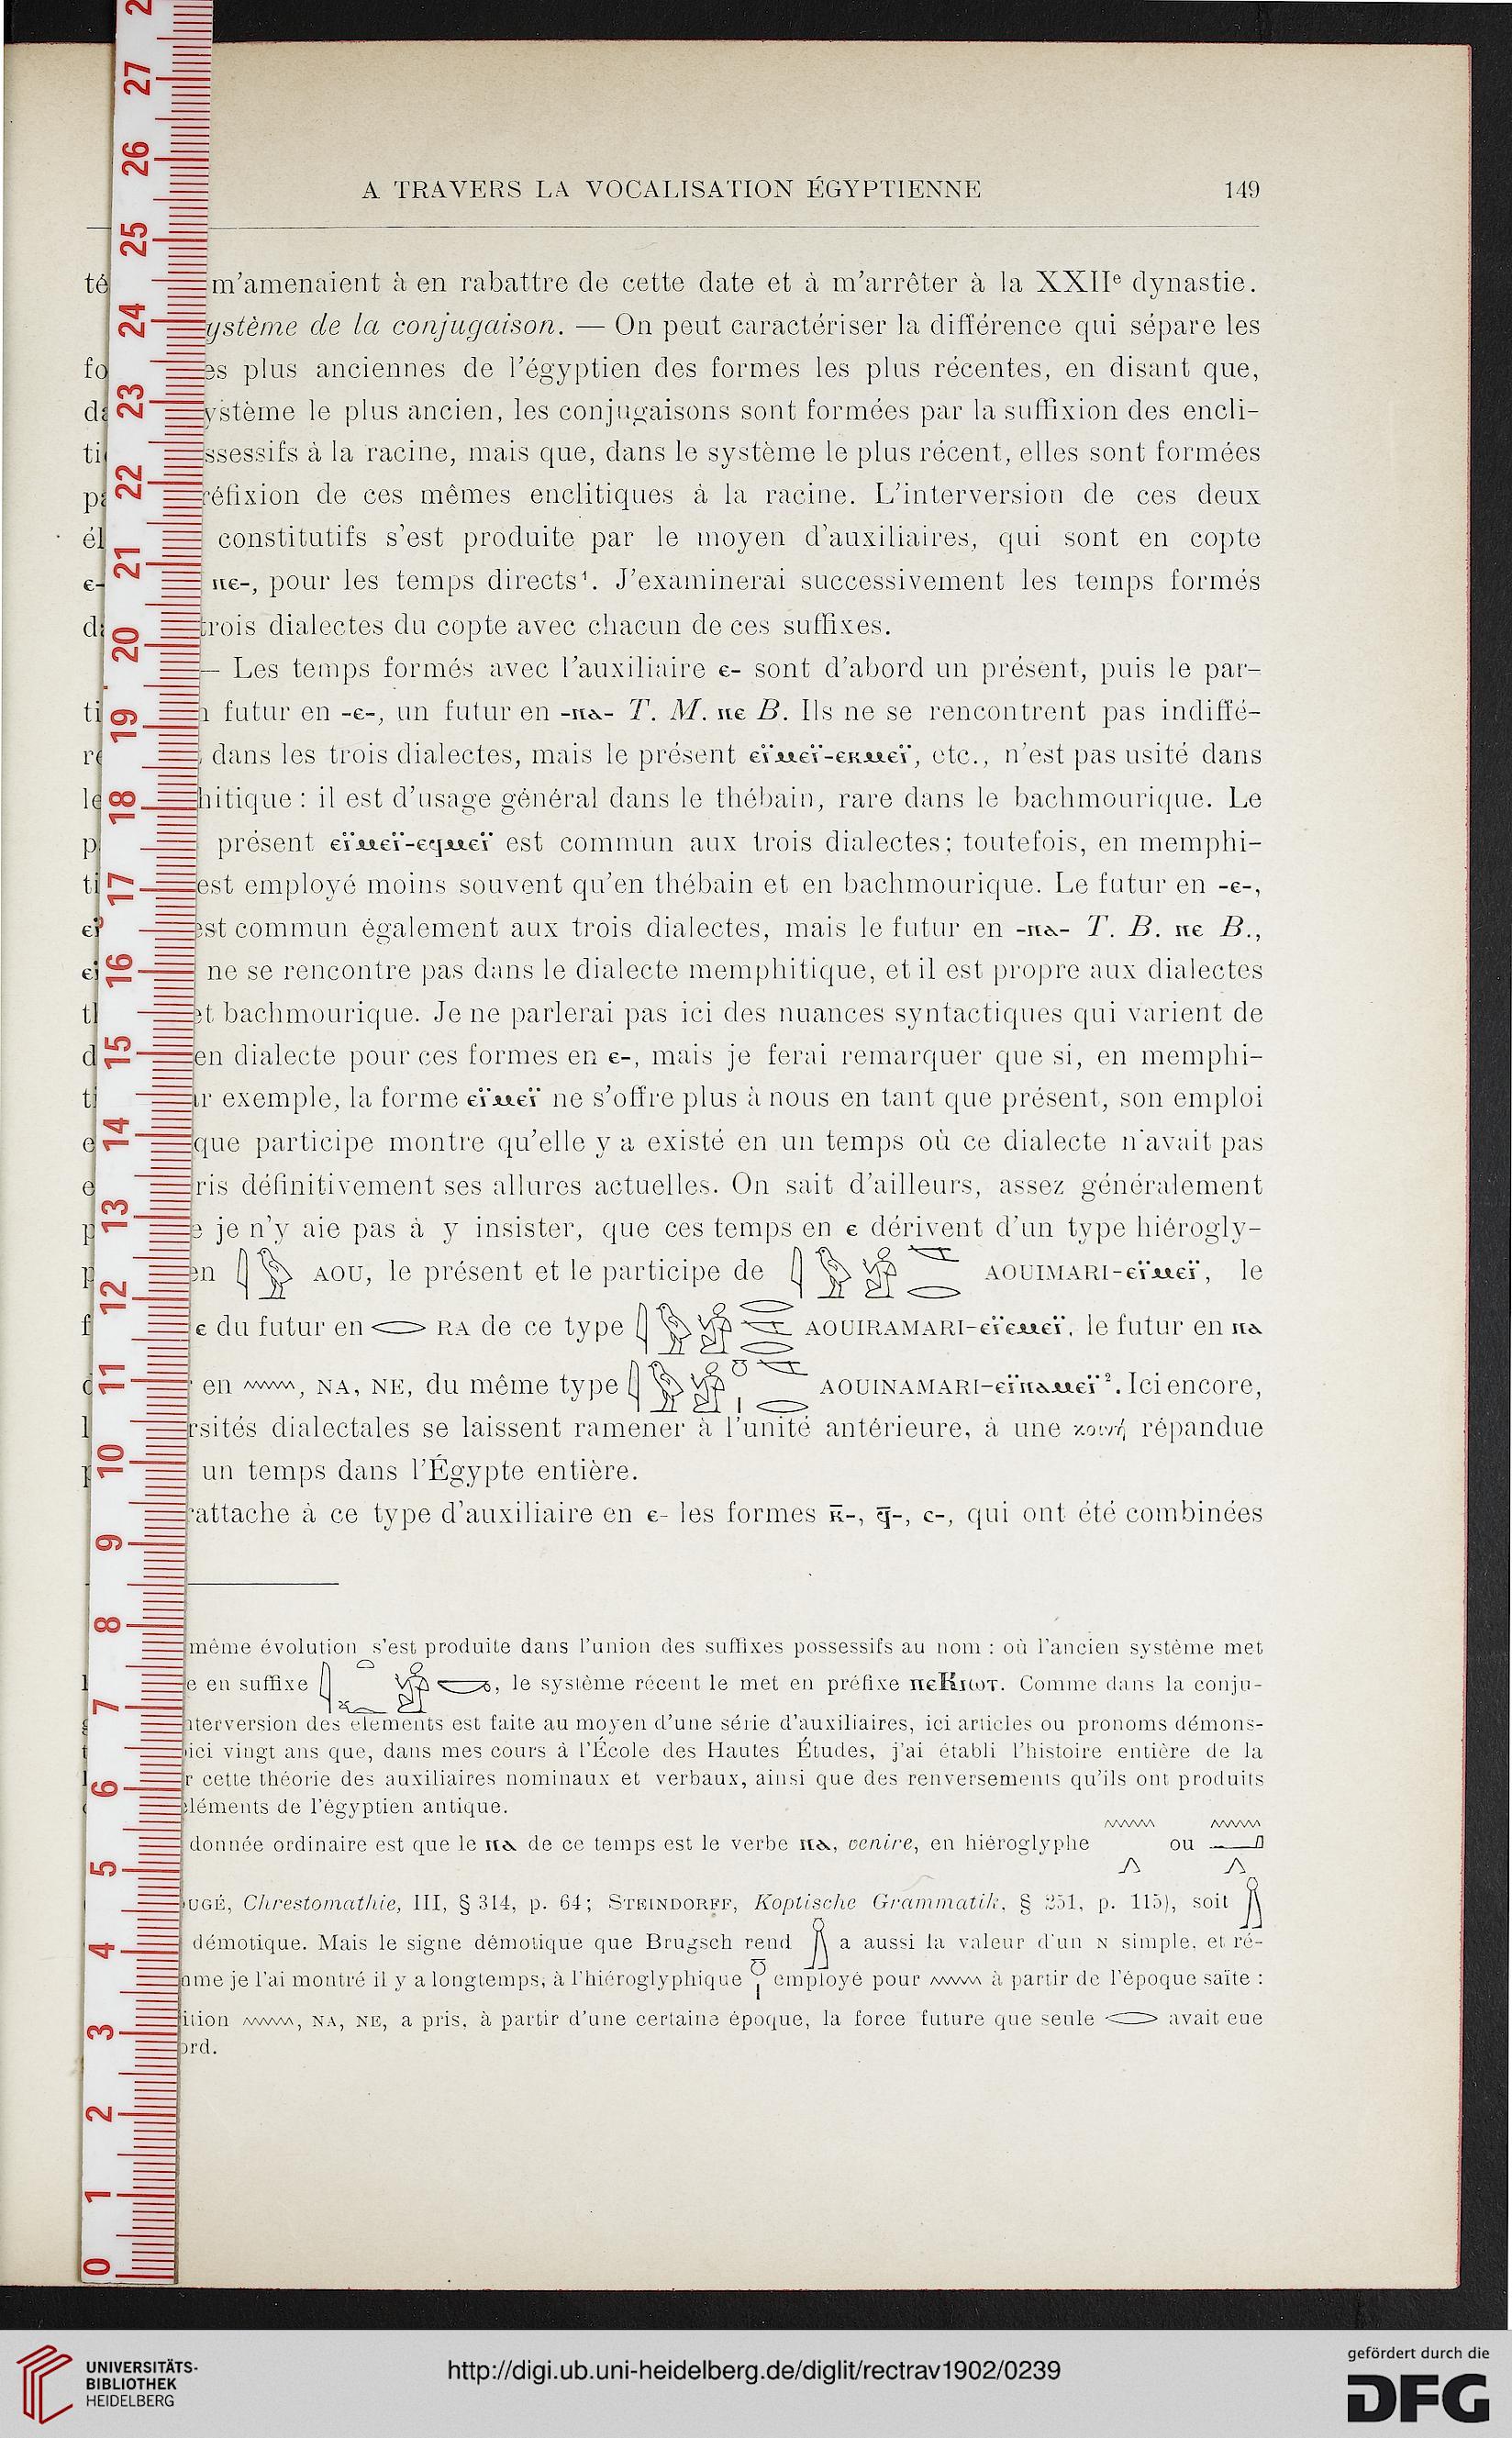 A TRAVERS LA VOCALISATION ÉGYPTIENNE 149
m'amenaient à en rabattre de cette date et à m'arrêter à la XXIIe dynastie.
ystème de la conjugaison. — On peut caractériser la différence qui sépare les
es plus anciennes de l'égyptien des formes les plus récentes, en disant que,
ystème le plus ancien, les conjugaisons sont formées par la suffixion des encli-
ssessifs à la racine, mais que, dans le système le plus récent, elles sont formées
réfixion de ces mêmes enclitiques à la racine. L'interversion de ces deux
constitutifs s'est produite par le moyen d'auxiliaires, qui sont en copte
ⲛⲉ-, pour les temps directs¹. J'examinerai successivement les temps formés
trois dialectes du copte avec chacun de ces suffixes.
— Les temps formés avec l'auxiliaire ⲉ- sont d'abord un présent, puis le par-
futur en -ⲉ-, un futur en -ⲛⲁ- T. M. ⲛⲉ B. Ils ne se rencontrent pas indiffé-
dans les trois dialectes, mais le présent ⲉⲓ̈ⲙⲉⲓ̈-ⲉⲕⲙⲉⲓ̈, etc., n'est pas usité dans
hitique : il est d'usage général dans le thébain, rare dans le bachmourique. Le
présent ⲉⲓ̈ⲙⲉⲓ̈-ⲉϥⲙⲉⲓ̈ est commun aux trois dialectes; toutefois, en memphi-
est employé moins souvent qu'en thébain et en bachmourique. Le futur en -ⲉ-,
est commun également aux trois dialectes, mais le futur en -ⲛⲁ- T. B. ⲛⲉ B.,
ne se rencontre pas dans le dialecte memphitique, et il est propre aux dialectes
et bachmourique. Je ne parlerai pas ici des nuances syntactiques qui varient de
en dialecte pour ces formes en ⲉ-, mais je ferai remarquer que si, en memphi-
r exemple, la forme ⲉⲓ̈ⲙⲉⲓ̈ ne s'offre plus à nous en tant que présent, son emploi
que participe montre qu'elle y a existé en un temps où ce dialecte n'avait pas
ris définitivement ses allures actuelles. On sait d'ailleurs, assez généralement
e je n'y aie pas à y insister, que ces temps en ⲉ dérivent d'un type hiérogly-
en AOU, le présent et le participe de AOUIMARI-ⲉⲓ̈ⲙⲉⲓ̈, le
ⲉ du futur en RA de ce type AOUIRAMARI-ⲉⲓ̈ⲉⲙⲉⲓ̈, le futur en ⲛⲁ
en , NA, NE, du même type AOUINAMARI-ⲉⲓ̈ⲛⲁⲙⲉⲓ̈². Ici encore,
rsités dialectales se laissent ramener à l'unité antérieure, à une κοινή répandue
un temps dans l'Égypte entière.
rattache à ce type d'auxiliaire en ⲉ- les formes ⲕ̄-, ϥ̄-, ⲥ-, qui ont été combinées
même évolution s'est produite dans l'union des suffixes possessifs au nom : où l'ancien système met
e en suffixe , le système récent le met en préfixe ⲡⲉⲕⲓⲱⲧ. Comme dans la conju-
nterversion des éléments est faite au moyen d'une série d'auxiliaires, ici articles ou pronoms démons-
ici vingt ans que, dans mes cours à l'École des Hautes Études, j'ai établi l'histoire entière de la
r cette théorie des auxiliaires nominaux et verbaux, ainsi que des renversements qu'ils ont produits
éléments de l'égyptien antique.
donnée ordinaire est que le ⲛⲁ de ce temps est le verbe ⲛⲁ, venire, en hiéroglyphe ou
ougé, Chrestomathie, III, § 314, p. 64; Steindorff, Koptische Grammatik, § 251, p. 115), soit
démotique. Mais le signe démotique que Brugsch rend a aussi la valeur d'un N simple, et ré-
me je l'ai montré il y a longtemps, à l'hiéroglyphique employé pour à partir de l'époque saïte :
ition , NA, NE, a pris, à partir d'une certaine époque, la force future que seule avait eue
ord.
0 1 2 3 4 5 6 7 8 9 10 11 12 13 14 15 16 17 18 19 20 21 22 23 24 25 26 27
UNIVERSITÄTS-
BIBLIOTHEK
HEIDELBERG
http://digi.ub.uni-heidelberg.de/diglit/rectrav1902/0239
gefördert durch die
DFG